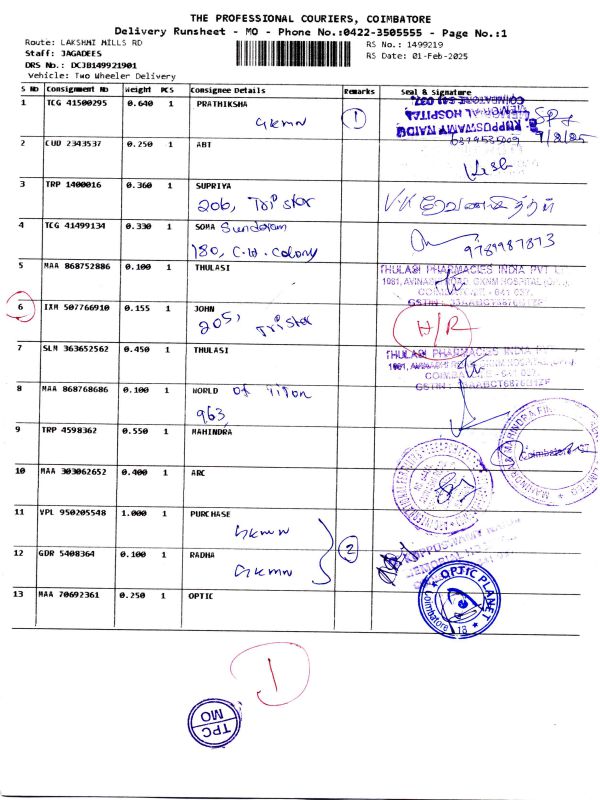 THE PROFESSIONAL COURIERS, COIMBATORE
Delivery Runsheet - MO - Phone No.:0422-3505555 - Page No.:1
Route: LAKSHMI MILLS RD
RS No.: 1499219
Staff: JAGADEES
RS Date: 01-Feb-2025
DRS No.: DCJB149921901
Vehicle: Two Wheeler Delivery
S No Consignment No Weight PCS Consignee Details Remarks Seal & Signature
1 TCG 41500295 0.640 1 PRATHIKSHA
GKMN 1
KUPPUSWAMY NAIDU
MEMORIAL HOSPITAL
COIMBATORE-641 037.
2 CUD 2343537 0.250 1 ABT
3 TRP 1400016 0.360 1 SUPRIYA
206, Tristar
4 TCG 41499134 0.330 1 SOMA Sundaram
180, C.W. Colony
9789987873
5 MAA 868752886 0.100 1 THULASI
THULASI PHARMACIES INDIA PVT LT
6 IXM 507766910 0.155 1 JOHN
205, Tristar
H/R
7 SLM 363652562 0.450 1 THULASI
THULASI PHARMACIES INDIA PVT
8 MAA 868768686 0.100 1 WORLD of Titan
963
9 TRP 4598362 0.550 1 MAHINDRA
Coimbatore
10 MAA 303062652 0.400 1 ARC
11 VPL 950205548 1.000 1 PURCHASE
GKMN
2
12 GDR 5408364 0.100 1 RADHA
GKMN
13 MAA 70692361 0.250 1 OPTIC
OPTIC PLANET
Coimbatore 18
1
TPC
MO